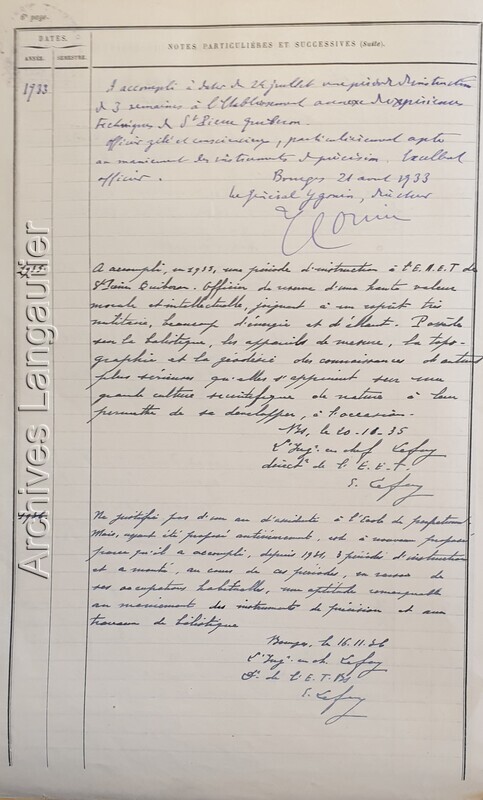 6e page.
DATES.
ANNÉE. SEMESTRE.
NOTES PARTICULIÈRES ET SUCCESSIVES (Suite).
1933
A accompli à dater du 24 juillet une période d'instruction
de 3 semaines à l'Etablissement annexe d'expériences
techniques de St Pierre Quiberon.
Officier zélé et consciencieux, particulièrement apte
au maniement des instruments de précision. Excellent
officier.
Bourges 21 août 1933
Le Général, directeur
A accompli, en 1935, une période d'instruction à l'E.A.E.T de
St Pierre Quiberon. Officier de réserve d'une haute valeur
morale et intellectuelle, joignant à un esprit très
militaire, beaucoup d'énergie et d'allant. Possède
sur la balistique, les appareils de mesure, la topo-
graphie et la géodésie des connaissances d'autant
plus sérieuses qu'elles s'appuient sur une
grande culture scientifique de nature à leur
permettre de se développer, à l'occasion.
Bs, le 20-10-35
L'Ingr en chef Lefay
direct. de l'E.E.T.
Lefay
1936
Ne justifie pas d'un an d'assiduité à l'Ecole de perfectnt
Mais, ayant été proposé antérieurement, est à nouveau proposé
parce qu'il a accompli, depuis 1931, 3 périodes d'instruction
et a montré, au cours de ces périodes, en raison de
ses occupations habituelles, une aptitude remarquable
au maniement des instruments de précision et aux
travaux de balistique
Bourges, le 16.11.36
L'Ingr en ch. Lefay
Dr de l'E.E.T. Bs
Lefay
Archives Langautier